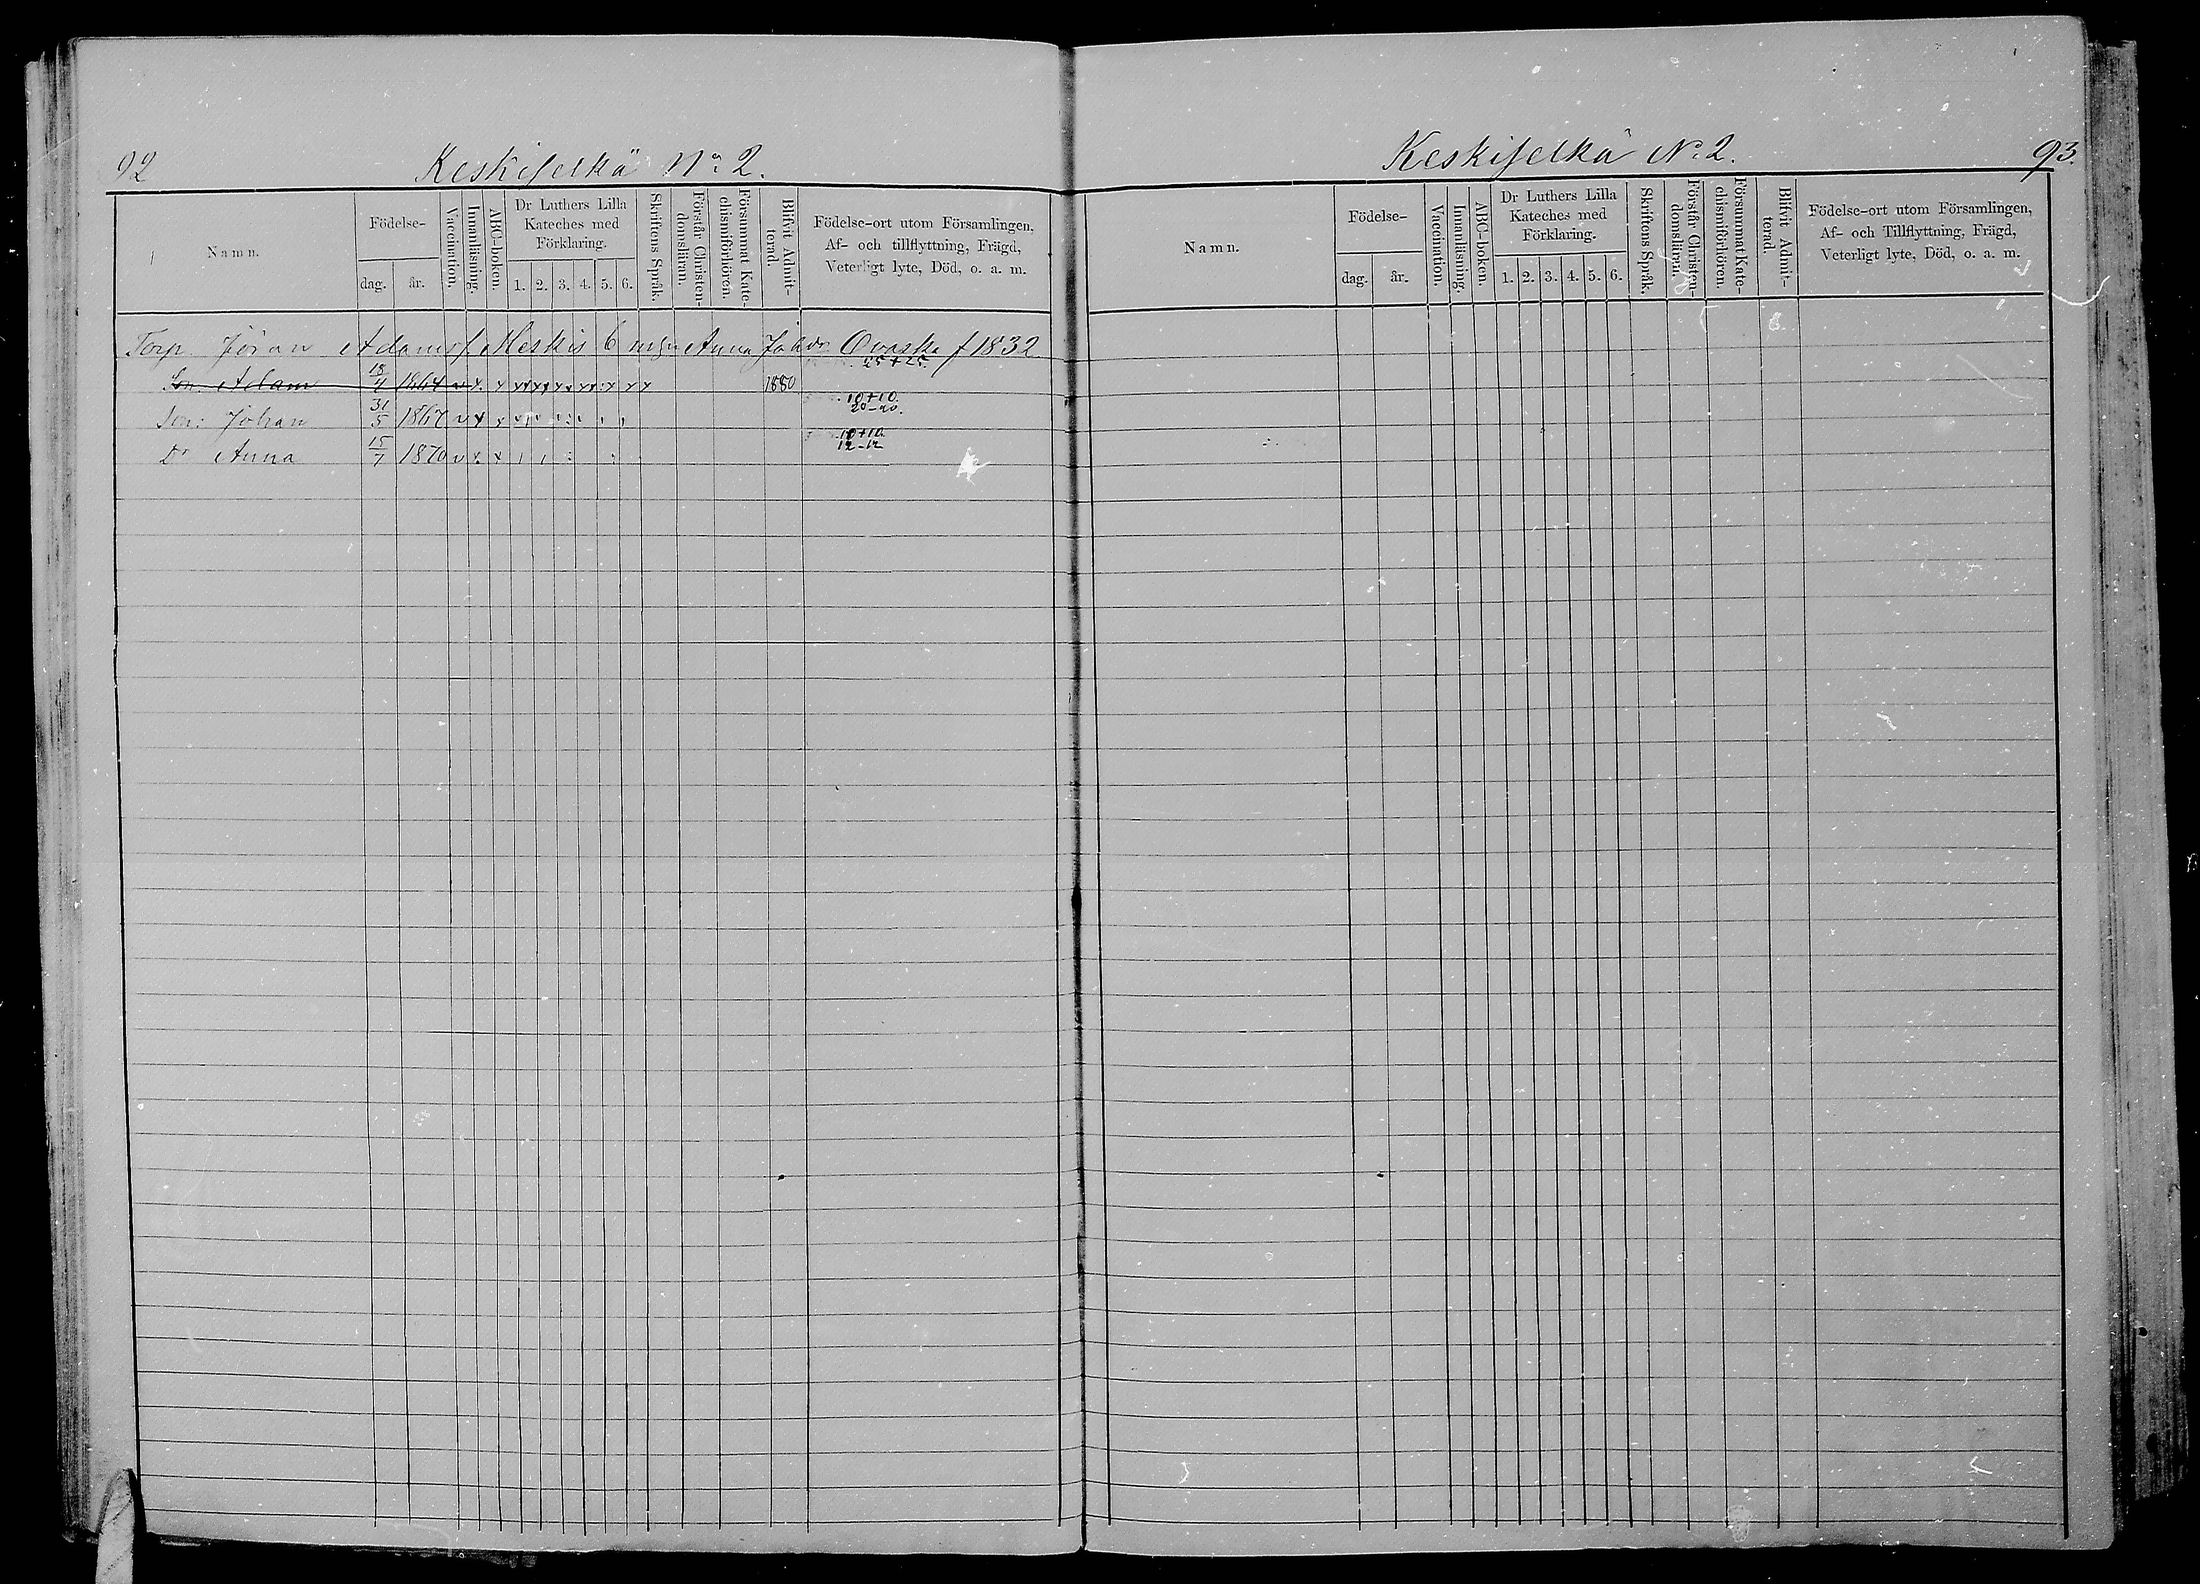 92
Keskiselkä No 2.
Namn.
Födelse-
dag.
år.
Vaccination.
Innanläsning.
ABC-boken.
Dr Luthers Lilla
Kateches med
Förklaring.
1. 2. 3. 4. 5. 6.
Skriftens Språk.
Förstår Christen-
domsläran.
Försummat Kate-
chismiförhören.
Blifvit Admit-
terad.
Födelse-ort utom Församlingen,
Af- och tillflyttning, Frägd,
Veterligt lyte, Död, o. a. m.
Torp. Jöran Adamsf Anna Joh. dr Ovaska f 1832
Son Adam 18/4 1864 v x x x x x x x x x x x 1880 25+25
Son: Johan 31/5 1867 v x x 10+10. 20-20.
Dr Anna 15/7 1870 v x x 10+10. 12-12
Keskiselkä No 2.
93.
Namn.
Födelse-
dag.
år.
Vaccination.
Innanläsning.
ABC-boken.
Dr Luthers Lilla
Kateches med
Förklaring.
1. 2. 3. 4. 5. 6.
Skriftens Språk.
Förstår Christen-
domsläran.
Försummat Kate-
chismiförhören.
Blifvit Admit-
terad.
Födelse-ort utom Församlingen,
Af- och Tillflyttning, Frägd,
Veterligt lyte, Död, o. a. m.